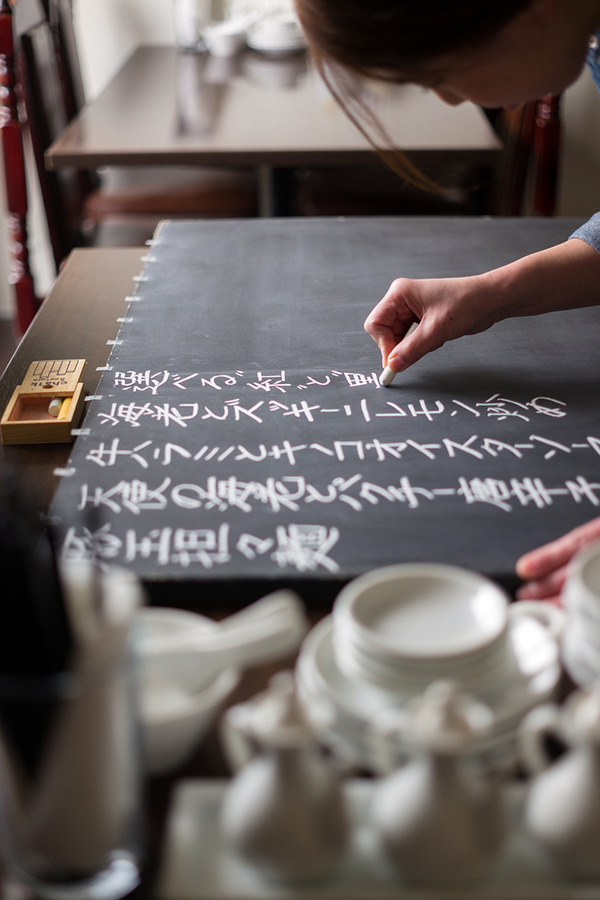 選べる"紅"と"黒
海老とズッキーニレモン炒め
牛ハラミとキノコオイスターソー
天使の海老とパクチー唐辛子
玉担々麺